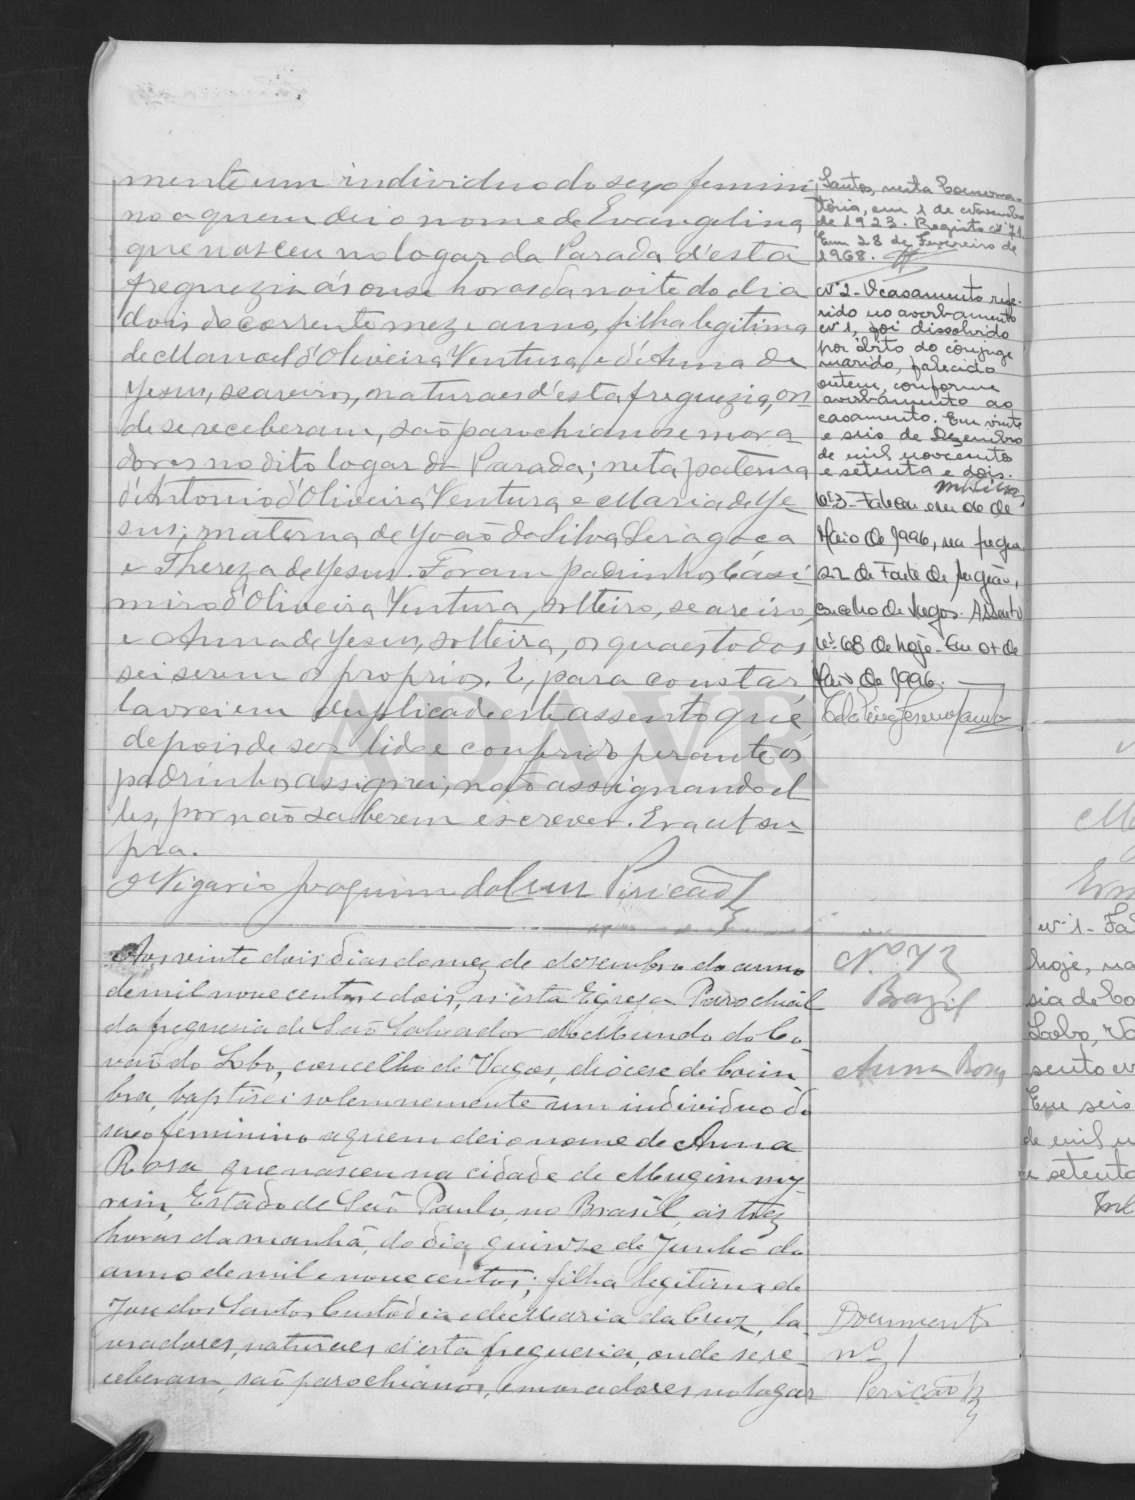 mente um individuo do sexo femini-
no a quem dei o nome de Evangelina
que nasceu no logar da Parada d'esta
freguezia ás onse horas da noite do dia
dois do corrente mez e anno, filha legitima
de Manoel d'Oliveira Ventura e d'Anna de
Jesus, seareiros, naturaes d'esta freguezia, on-
de se receberam, são parochianos e mora-
dores no dito logar da Parada; neta paterna
d'Antonio d'Oliveira Ventura e Maria de Je-
sus; materna de João da Silva
e Thereza de Jesus. Foram padrinhos Casi-
miro d'Oliveira Ventura, solteiro, seareiro,
e Anna de Jesus, solteira, os quaes todos
sei serem os proprios. E, para constar
lavrei em duplicado este assento que,
depois de ser lido e conferido perante os
padrinhos assignei, não assignando el-
les, por não saberem escrever. Era ut su-
pra.
O Vigario Joaquim da Cruz Pericão
Santos, nesta Conserva-
tória, em 1 de Novembro
de 1923. Registo nº 71.
Em 28 de Fevereiro de
1968.
Nº 2 - O casamento refe-
rido no averbamento
nº 1, foi dissolvido
por óbito do cônjuge
marido, falecido
ontem, conforme
averbamento ao
casamento. Em vinte
e seis de Dezembro
de mil novecentos
e setenta e dois.
Nº 3 - Faleceu em de de
Maio de 1996, na freguesia
de Fonte de Angeão,
concelho de Vagos. Assento
nº 68 de hoje. Em 07 de
Maio de 1996.
ADAVR
Aos vinte dois dias do mez de dezembro do anno
de mil nove centos e dois, n'esta Egreja Parochial
da freguesia de São Salvador do Mundo do Co-
vão do Lobo, concelho de Vagos, diocese de Coim-
bra, baptisei solemnemente um individuo do
sexo feminino a quem dei o nome de Anna
Rosa que nasceu na cidade de Mugimmy-
rim, Estado de São Paulo, no Brasil, ás trez
horas da manhã, do dia quinze de Junho do
anno de mil e nove centos; filha legitima de
José dos Santos Custodio e de Maria da Cruz, la-
vradores, naturaes d'esta freguesia, onde se re-
ceberam, são parochianos, e moradores no logar
Nº 72
Brazil
Anna Rosa
Documento
nº 1
Pericão
Nº 1 - Fa
hoje, na
sia de Co
Lobo, Va
sento n
Em seis
de mil n
e setenta